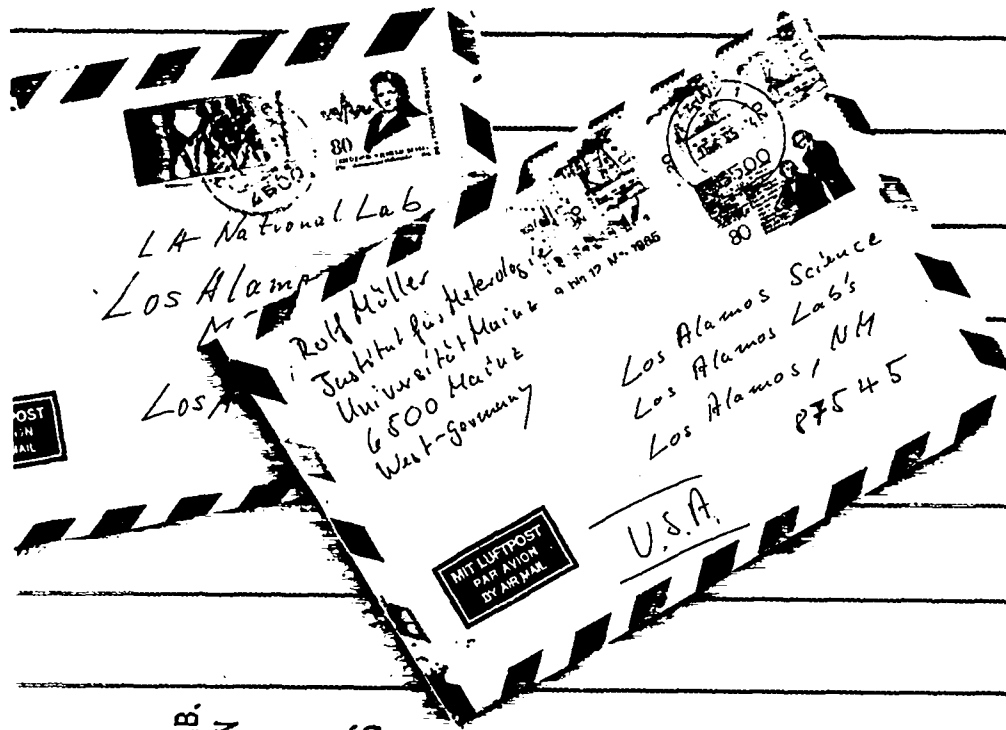 80
6500
LA National Lab
Los Alam
Los A
POST
MAIL
Rolf Müller
Institut für Meterologie
Universität Mainz
6500 Mainz
West-Germany
6500
80
Los Alamos Science
Los Alamos Lab's
Los Alamos, NM
87545
U.S.A.
MIT LUFTPOST
PAR AVION
BY AIR MAIL
B.
N